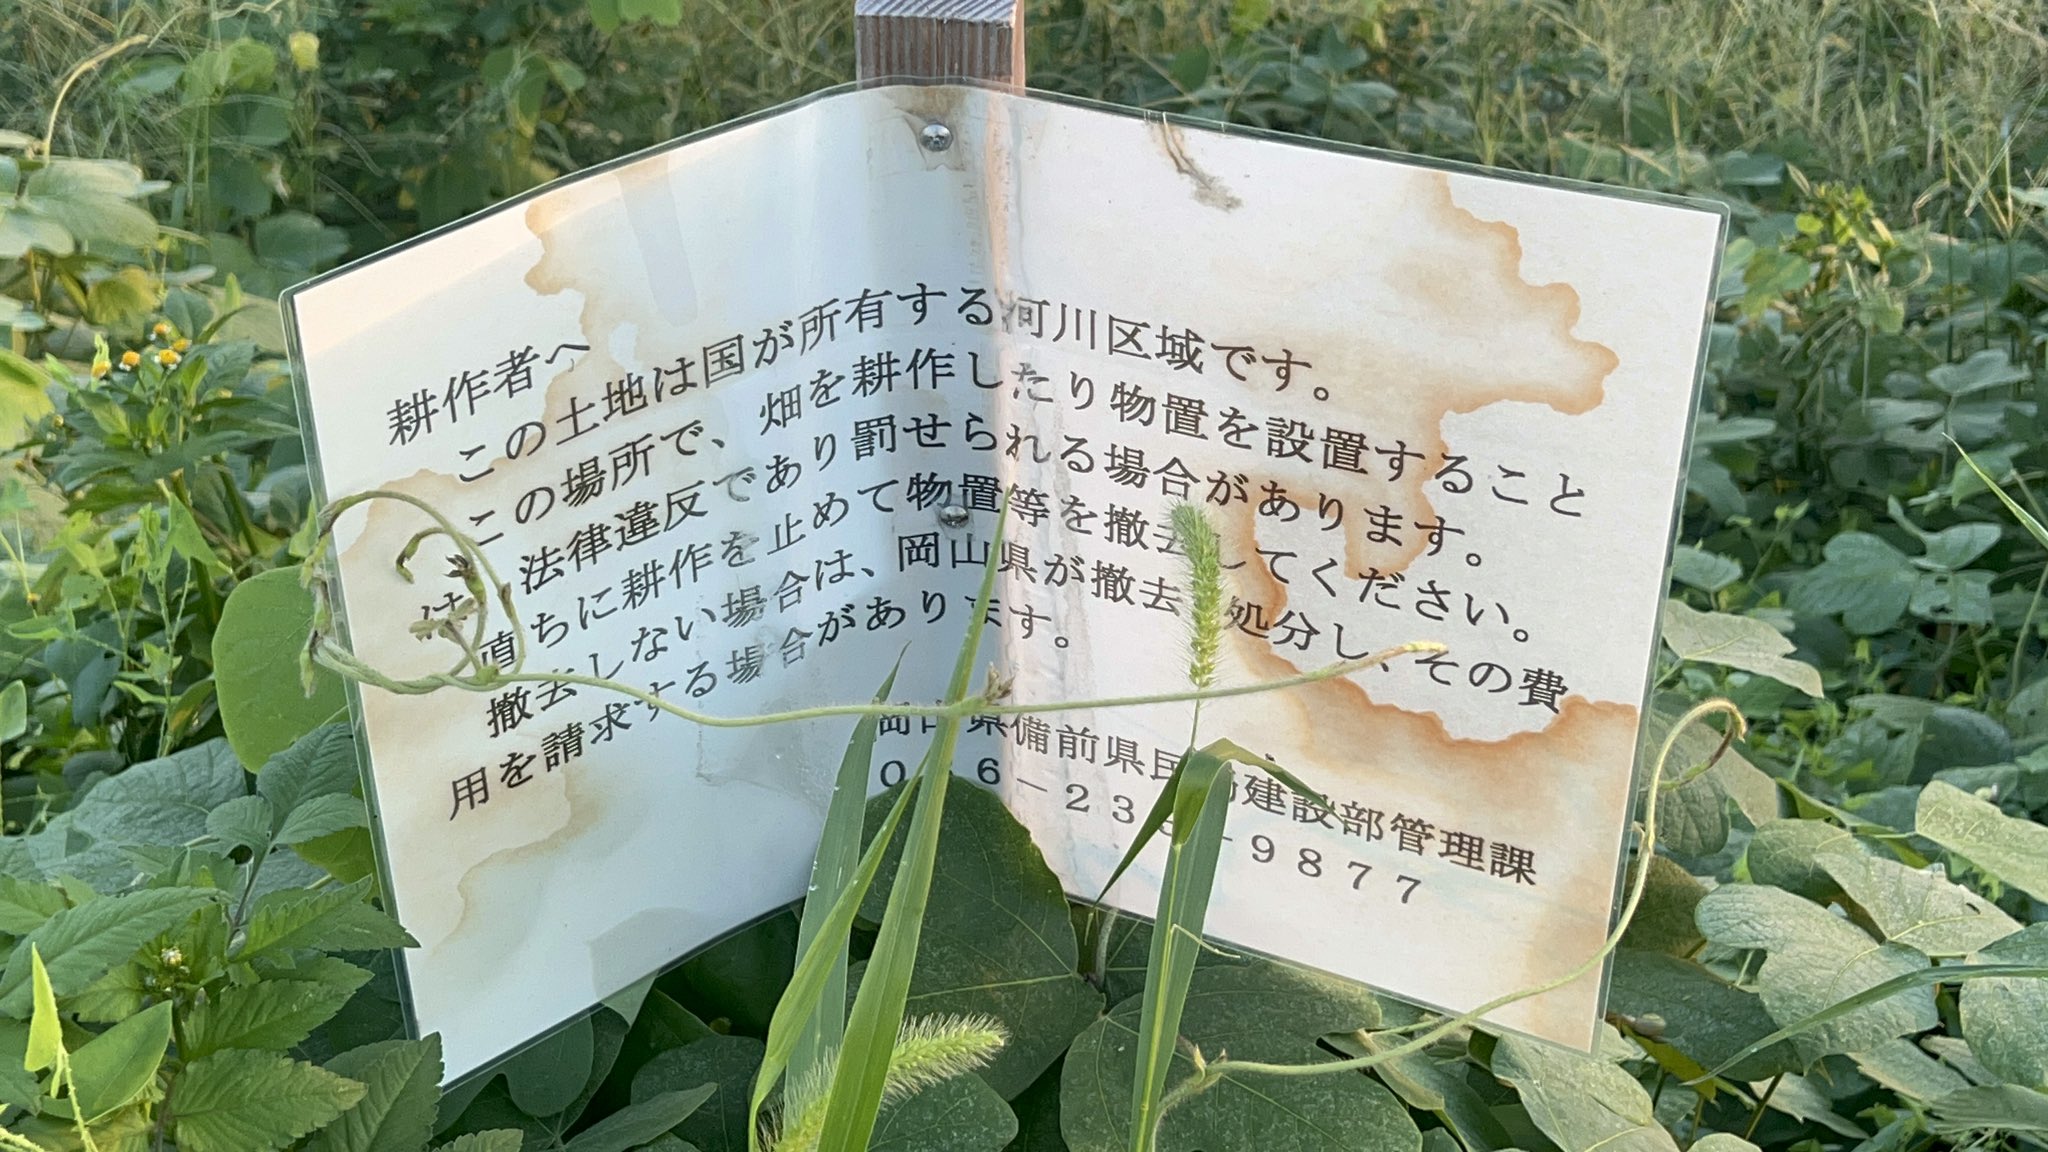 耕作者へ
この土地は国が所有する河川区域です。
この場所で、畑を耕作したり物置を設置すること
は、法律違反であり罰せられる場合があります。
直ちに耕作を止めて物置等を撤去してください。
撤去しない場合は、岡山県が撤去 処分し、その費
用を請求する場合があります。
岡山県備前県民局建設部管理課
0 6-23 -9877